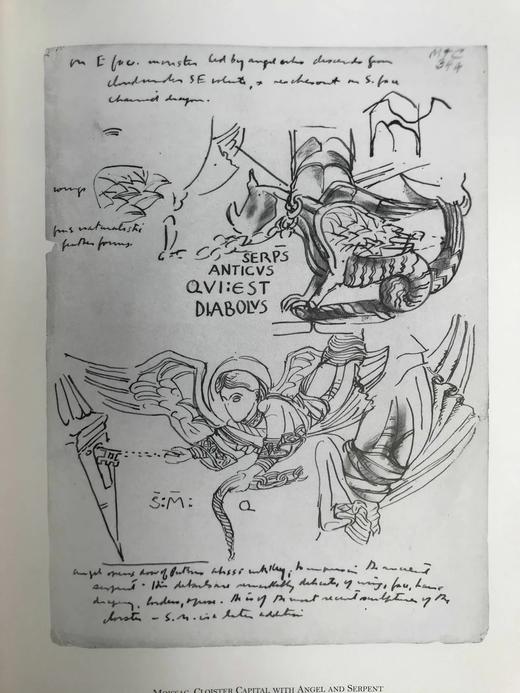 on E face. monster led by angel who descends from
clouds under SE volute, & reaches out on S. face
chained dragon.
M+C
344
wings
feather forms
SERP̄S
ANTICVS
QVI:EST
DIABOLVS
S̄:M̄:
Q
angel opens door of abyss with key, to the ancient
serpent. His details are remarkably delicate, of wing, face, hand
drapery, borders, This is of the most recent sculptures of the
cloister – S.M. is a later addition
MOISSAC, CLOISTER CAPITAL WITH ANGEL AND SERPENT